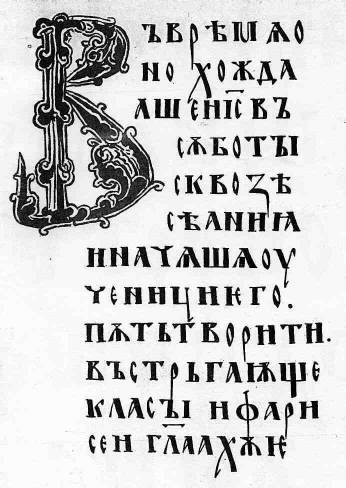 ВЪ ВРѢМѦ О
НО ХОЖДА
АШЕ Н҃ІС В Ъ
СѪБОТЪІ
СКВОЗѢ
СѢꙖНИꙖ
И НАЧѦШѦ ОУ
ЧЕНИЦИ ѤГО.
ПѪТЬ ТВОРИТИ.
ВЪСТРЬГАѬЩЕ
КЛАСЪІ И ФАРИ
СЕИ ГЛ҃ААХѪ Ѥ